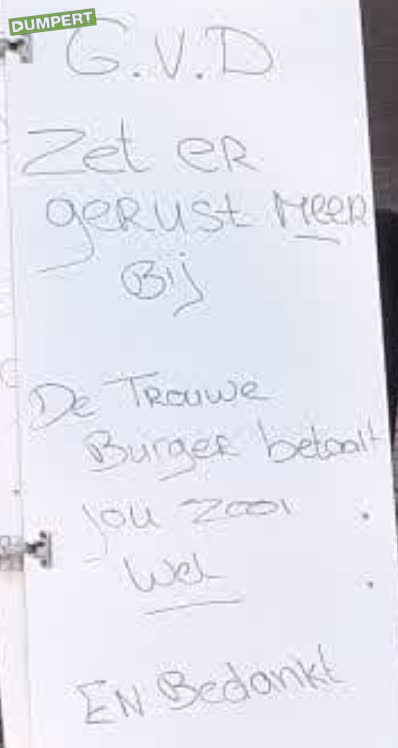 DUMPERT
G.V.D
Zet ER
geRust MeeR
Bij
De Trouwe
Burger betaalt
jou zooi
wel
EN Bedankt